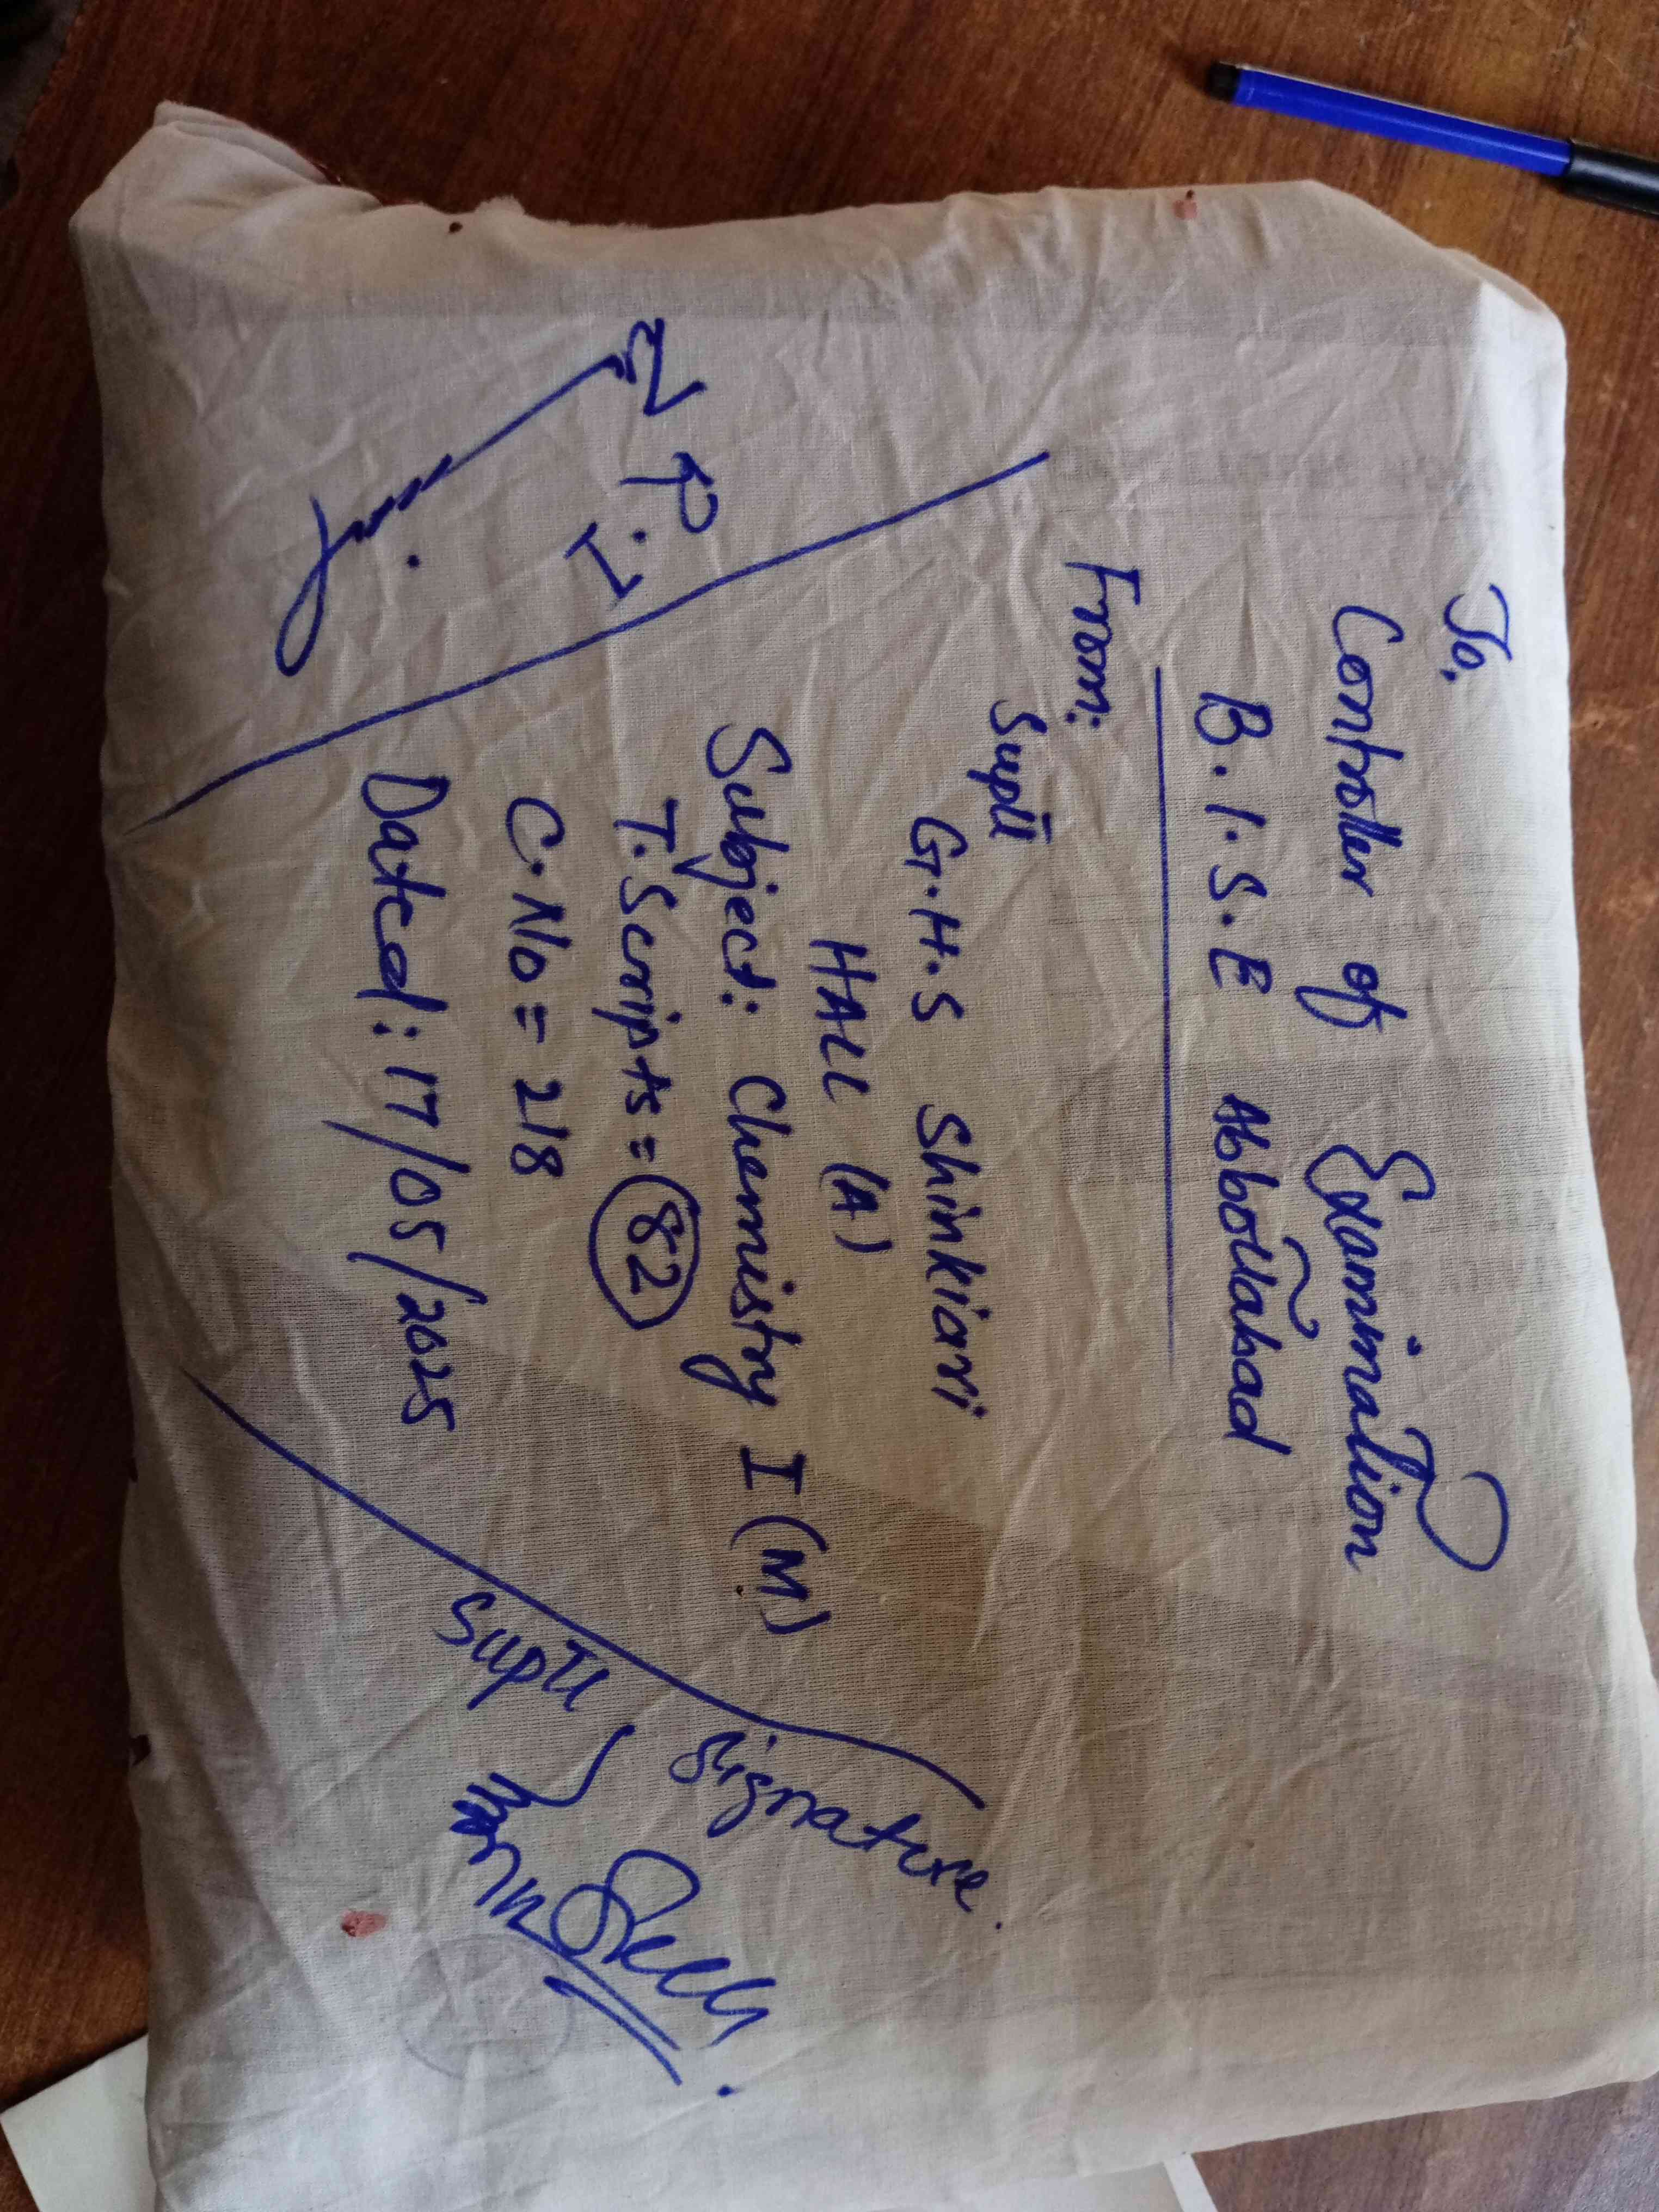 To,
Controller of Examination
B.I.S.E Abbottabad
From:
Supdt
G.H.S Shinkiari
HALL (A)
Subject: Chemistry I (M)
T.Scripts = 82
C.No = 218
Dated: 17/05/2025
P.I
Supdt Signature.